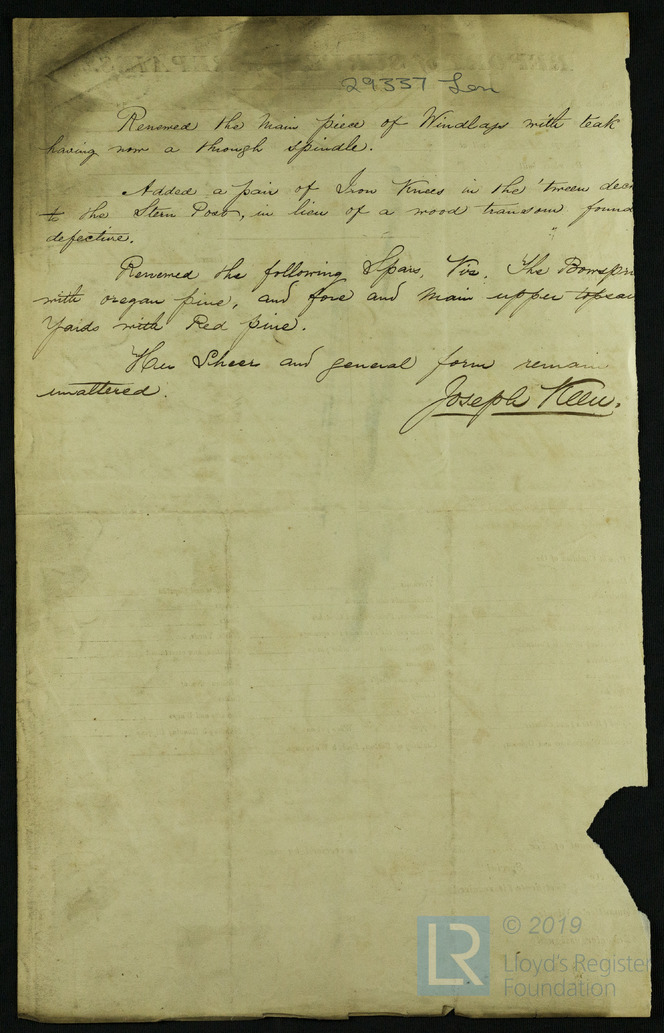 29337 Lon
Renewed the main piece of Windlass with teak
having now a through spindle.
Added a pair of Iron Knees in the 'tween deck
to the Stern Post, in lieu of a wood transom found
defective.
Renewed the following Spars, Viz, The Bowspri
with oregan pine, and fore and main upper topsai
Yards with Red pine.
Her Sheer and general form remain
unaltered.
Joseph Keen.
© 2019
LR
Lloyd's Register
Foundation